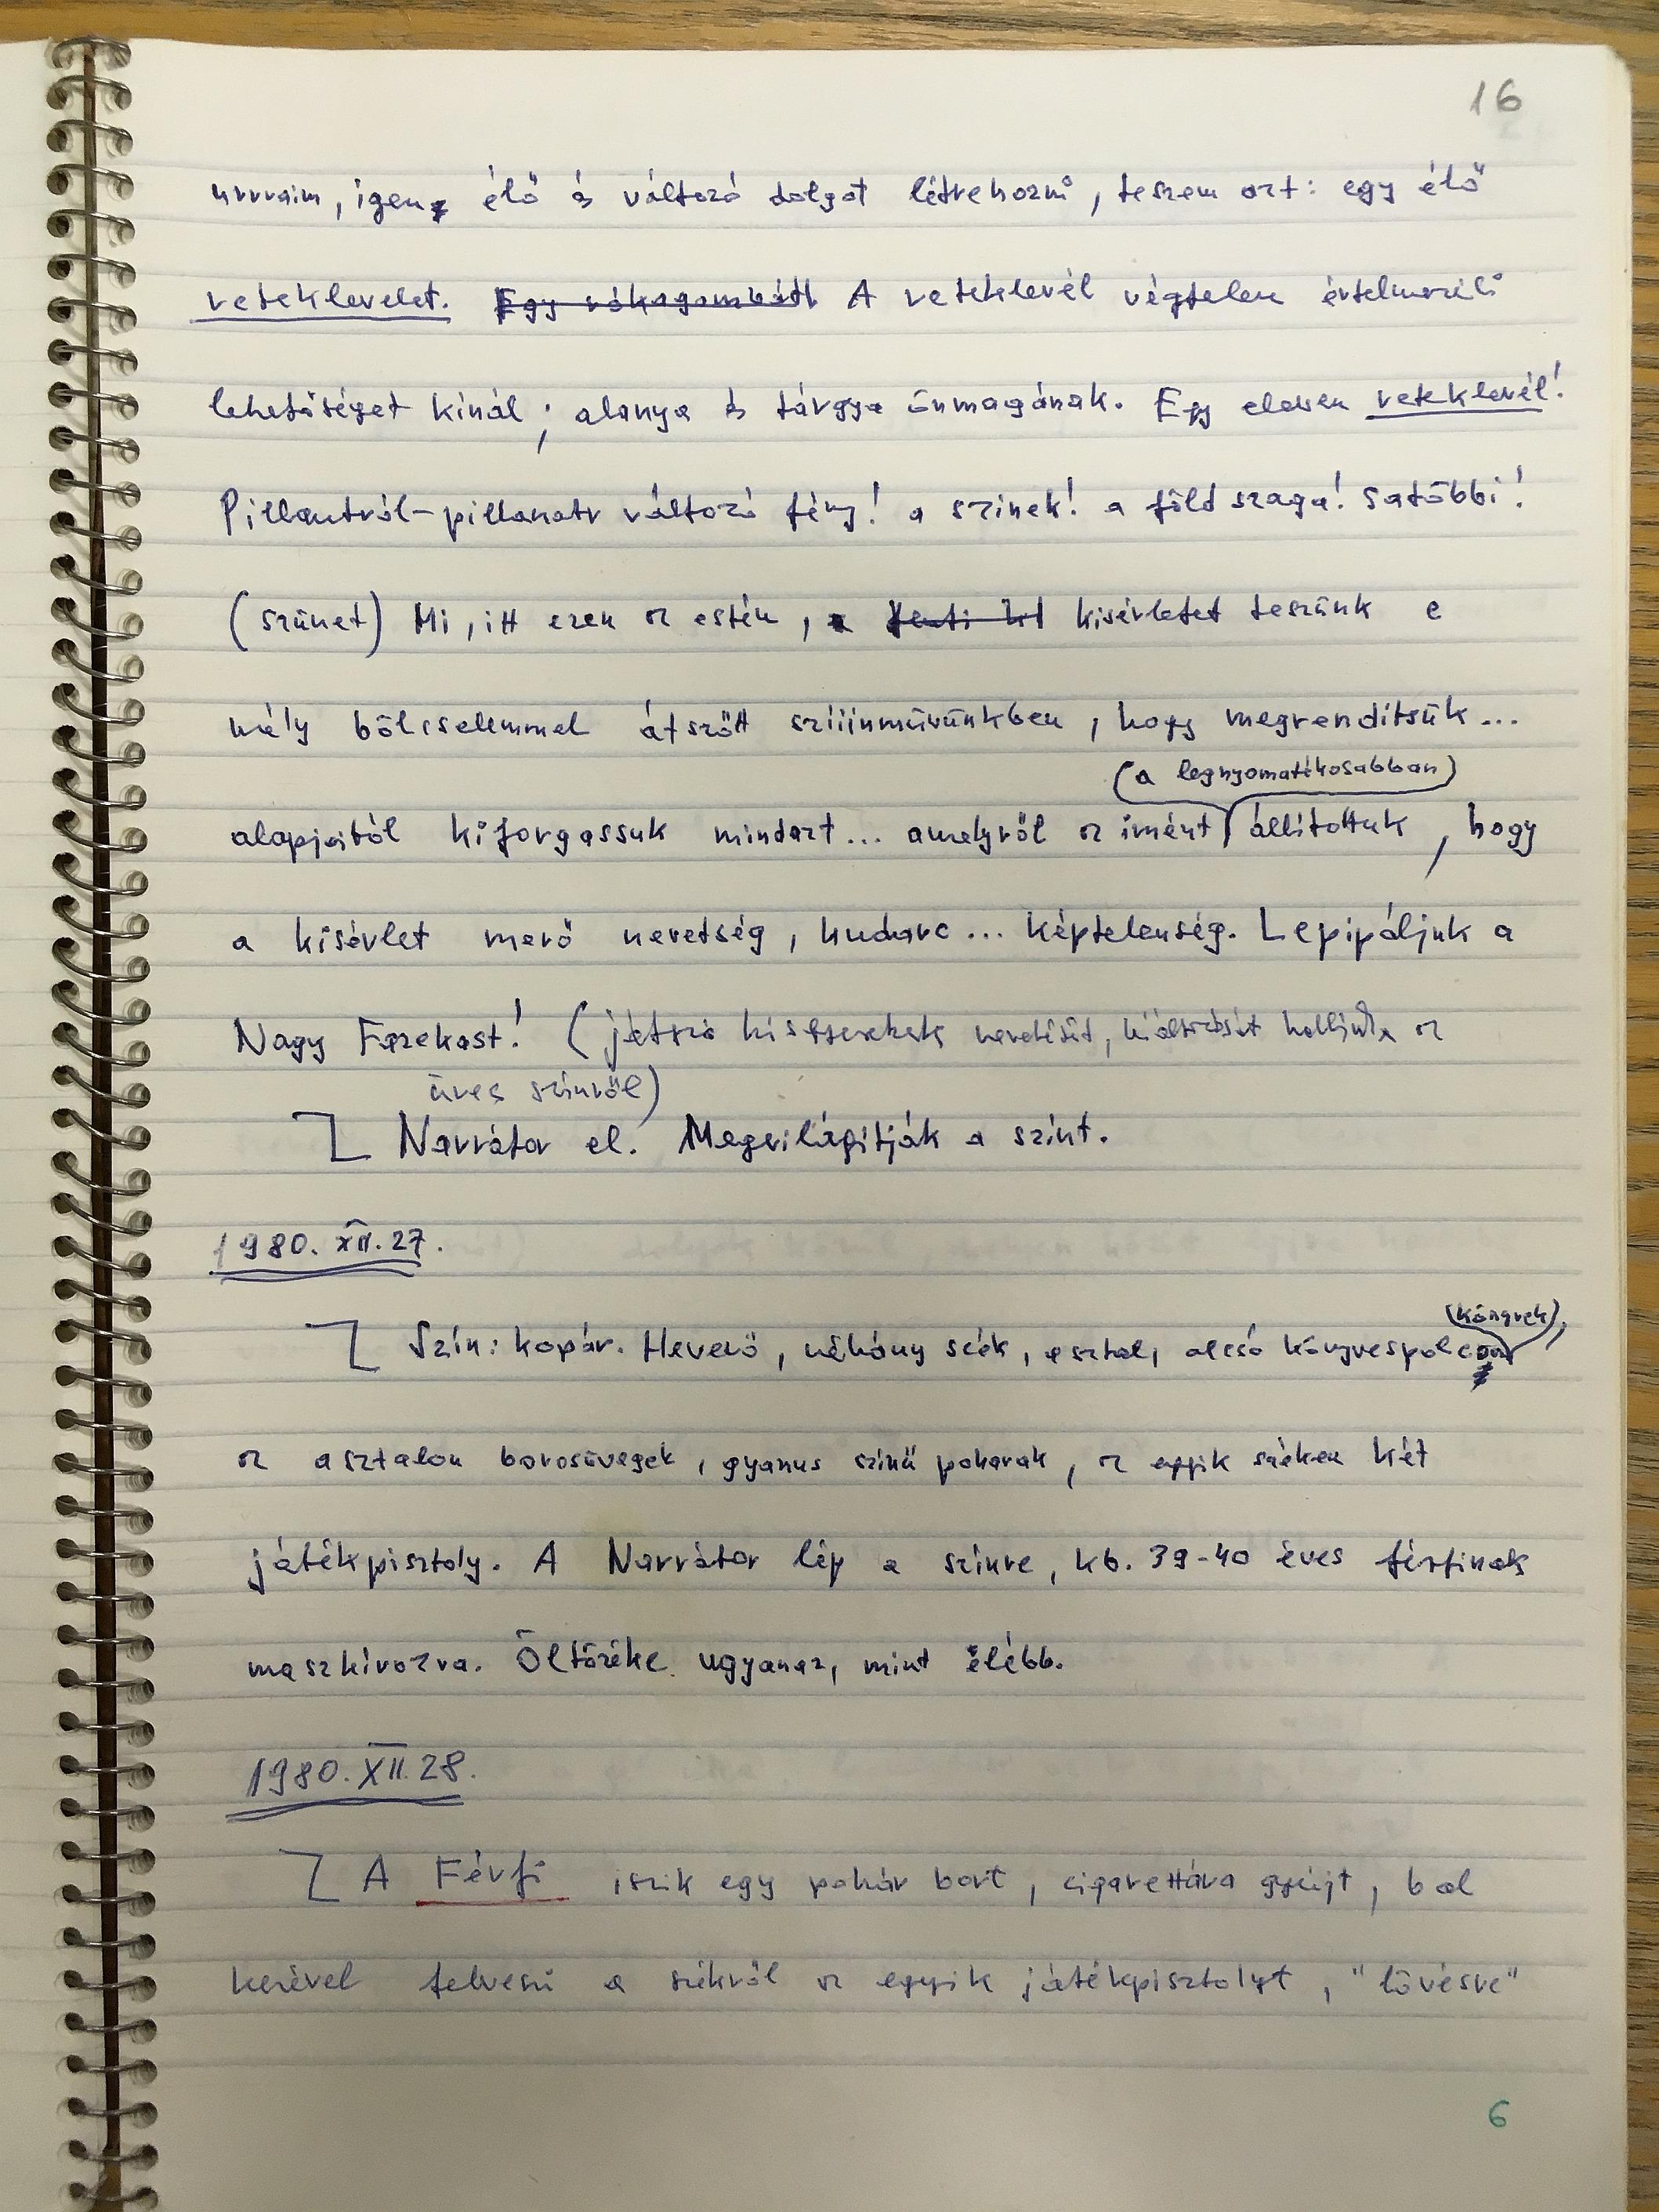 16
urrraim, igen, élő és változó dolgot létrehozni, teszem azt: egy élő
reteklevelet. Egy rókagombát! A reteklevél végtelen értelmezési
lehetőséget kinál; alanya és tárgya önmagának. Egy eleven reteklevél!
Pillantról-pillanatr változó fény! a szinek! a föld szaga! satöbbi!
(szünet) Mi, itt ezen az estén, kisérletet teszünk e
mély bölcselemmel átszőtt sziiinművünkben, hogy megrenditsük...
(a legnyomatékosabban)
alapjaitól kiforgassuk mindazt... amelyről az imént állitottuk, hogy
a kisérlet merő nevetség, kudarc... képtelenség. Lepipáljuk a
Nagy Fazekast! (játszó kisgyerekek nevetését, kiáltozását halljuk az
üres szinről)
Narrátor el. Megvilágitják a szint.
1980. XII. 27.
(könyvek),
Szin: kopár. Heverő, néhány szék, asztal, olcsó könyvespolcon
az asztalon borosüvegek, gyanus szinű poharak, az egyik széken két
játékpisztoly. A Narrátor lép a szinre, kb. 39-40 éves férfinak
maszkirozva. Öltözéke ugyanaz, mint előbb.
1980. XII. 28.
A Férfi iszik egy pohár bort, cigarettára gyújt, bal
kezével felveszi a székről az egyik játékpisztolyt, "lövésre"
6